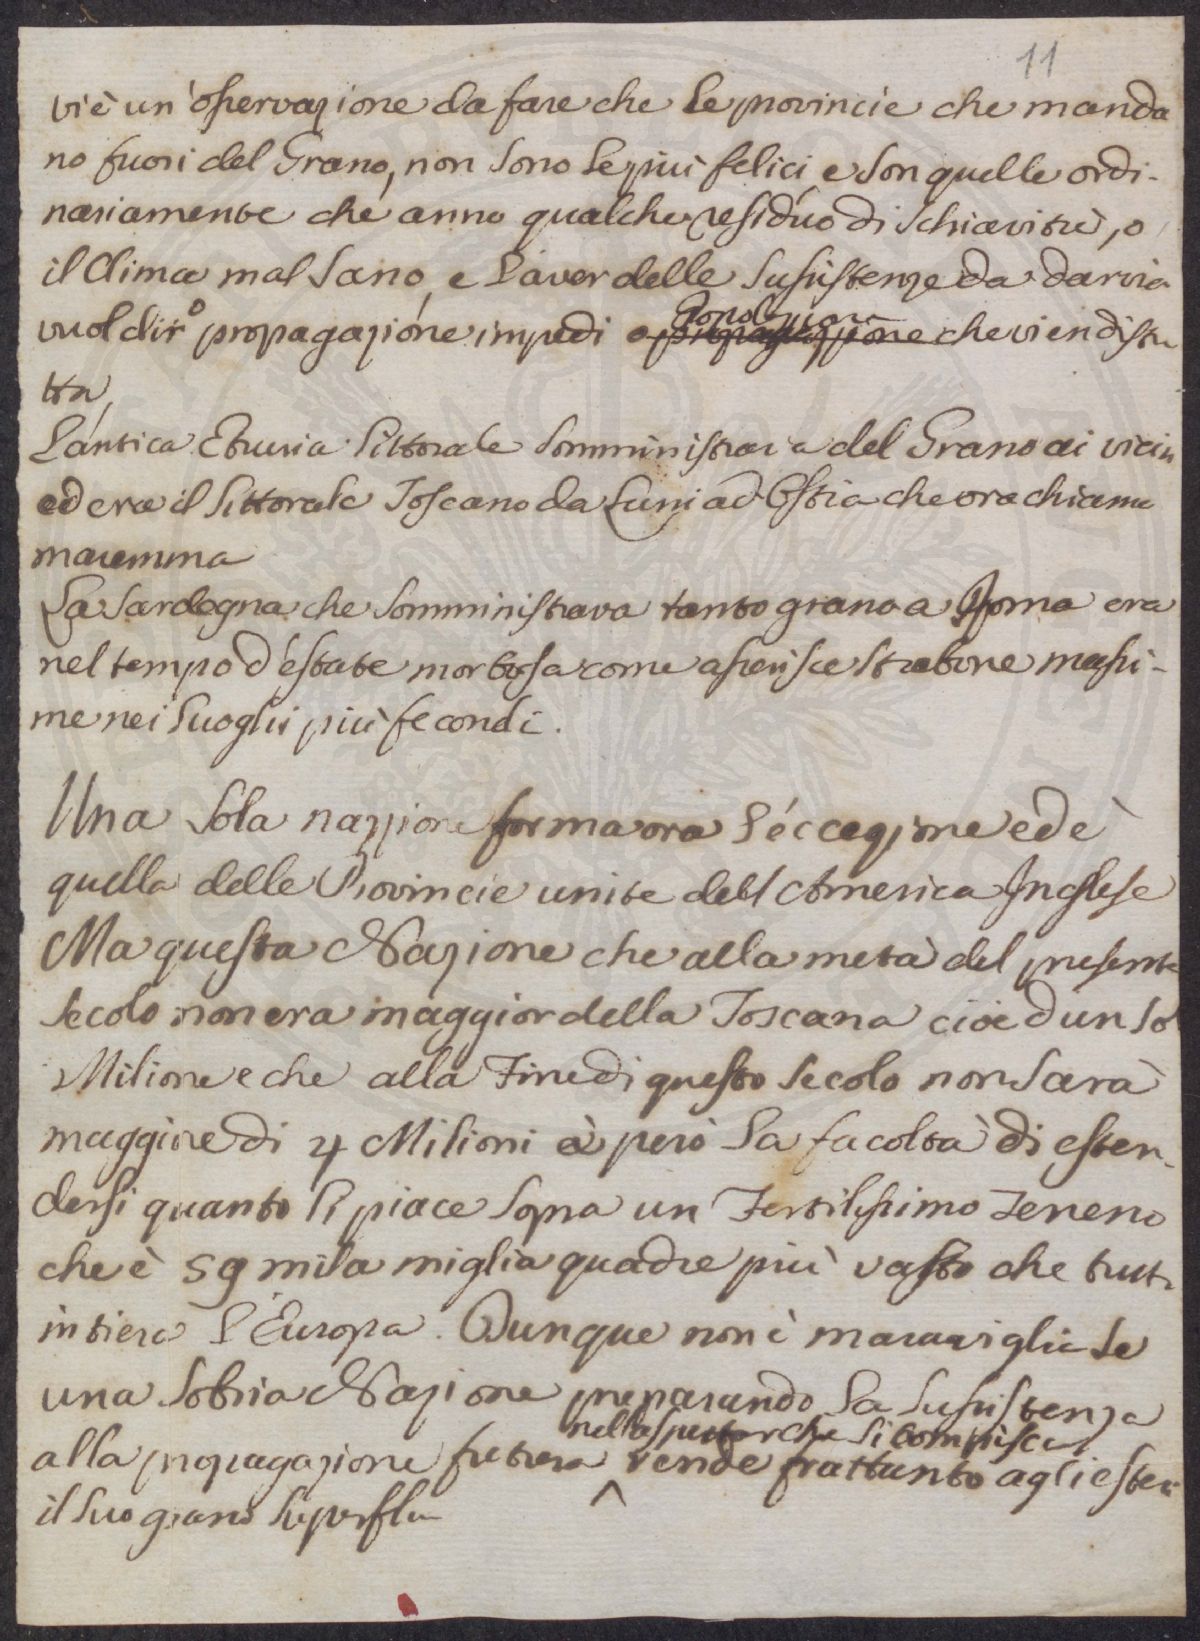 11
vi è un'osservazione da fare che le provincie che manda
no fuori del Grano, non sono le più felici e son quelle ordi-
nariamente che anno qualche residuo di schiavitù, o
il Clima mal sano, e l'aver delle sussistenze da dar via
vuol dir propagazione impedi o propagazione che vien distru
Popolazione
tta,
L'antica Etruria littorale somministrava del Grano ai vicin
ed era il littorale Toscano da Luni ad Ostia che ora chiama
maremma
La Sardegna che somministrava tanto grano a Roma era
nel tempo d'estate morbosa come asserisce Strabone massi-
me nei luoghi più fecondi.
Una sola nazzione forma ora l'éccezione ed è
quella delle Provincie unite dell America Inglese
Ma questa Nazione che alla metà del presente
secolo non era maggior della Toscana cioè d un so
Milione e che alla Fine di questo secolo non sarà
maggiore di 4 Milioni à però la facoltà di esten-
dersi quanto li piace sopra un Fertilissimo Terreno
che è 59 mila miglia quadre più vasto che tutt
intiera l'Europa. Dunque non è maraviglia se
una sobria Nazione preparando la sussistenza
nell aspettar che si compisca
alla propagazione futura vende frattanto agli ester
il suo grano superfluo